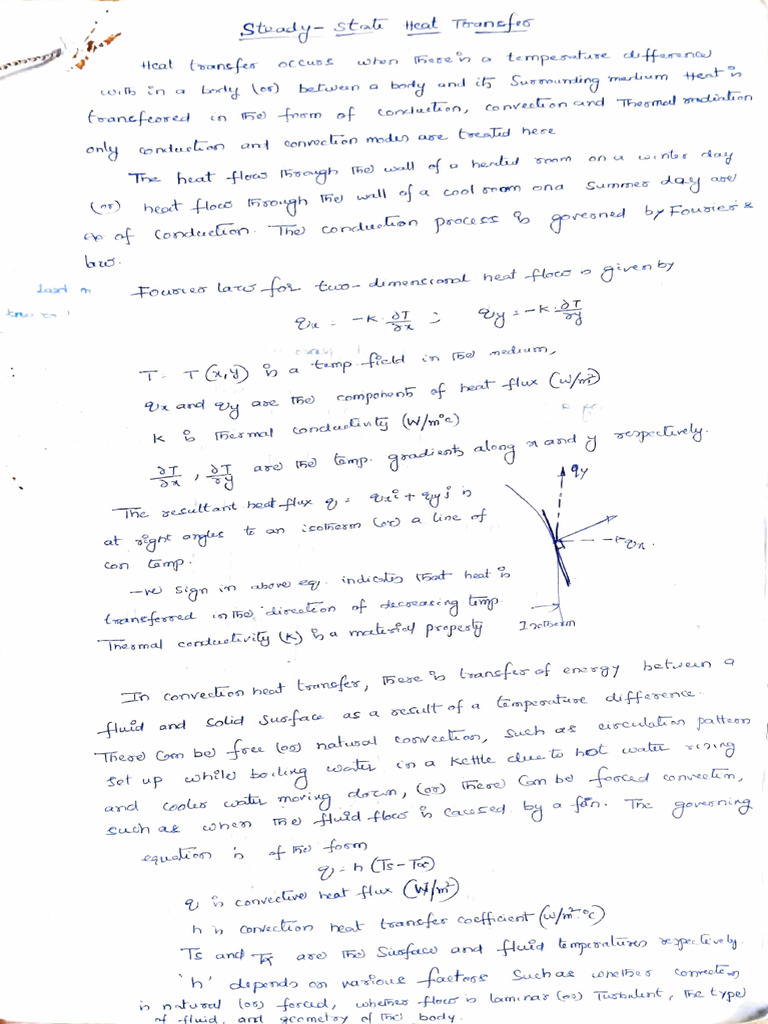 Steady-State Heat Transfer
Heat transfer occurs when there is a temperature difference
with in a body (or) between a body and its Surrounding medium Heat is
transfeored in the form of conduction, convection and Thermal radiation
only conduction and convection modes are treated here
The heat flow through the wall of a heated room on a winter day
(or) heat flow through the wall of a cool room on a summer day are
of conduction. The conduction process is governed by Fourier's
law.
Fourier law for two-dimensional heat flow is given by
qx = -K · ∂T/∂x ; qy = -K · ∂T/∂y
T = T(x,y) is a temp. field in the medium,
qx and qy are the components of heat flux (W/m²)
K is Thermal conductivity (W/m°c)
∂T/∂x , ∂T/∂y are the temp. gradients along x and y respectively.
The resultant heat flux q = qxi + qyj is
at right angles to an isotherm (or) a line of
con temp.
-ve sign in above eq. indicates that heat is
transferred in the direction of decreasing temp.
Thermal conductivity (K) is a material property
qy
qx.
Isotherm
In convection heat transfer, there is transfer of energy between a
fluid and solid surface as a result of a temperature difference.
There can be free (or) natural convection, such as circulation pattern
set up while boiling water in a kettle due to hot water rising
and cooler water moving down, (or) there can be forced convection,
such as when the fluid flow is caused by a fan. The governing
equation is of the form
q = h (Ts - T∞)
q is convective heat flux (W/m²)
h is convection heat transfer coefficient (W/m²·°c)
Ts and are the Surface and fluid temperatures respectively.
'h' depends on various factors Such as whether convection
is natural (or) forced, whether flow is laminar (or) Turbulent, the type
of fluid, and geometry of the body.